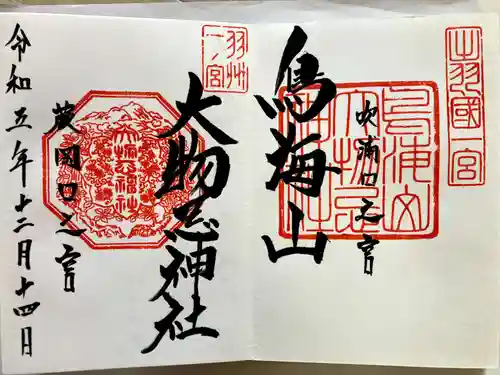 出羽國一宮
吹浦口之宮
鳥海山
羽州一ノ宮
大物忌神社
蕨岡口之宮
大物忌神社
令和五年十二月十四日